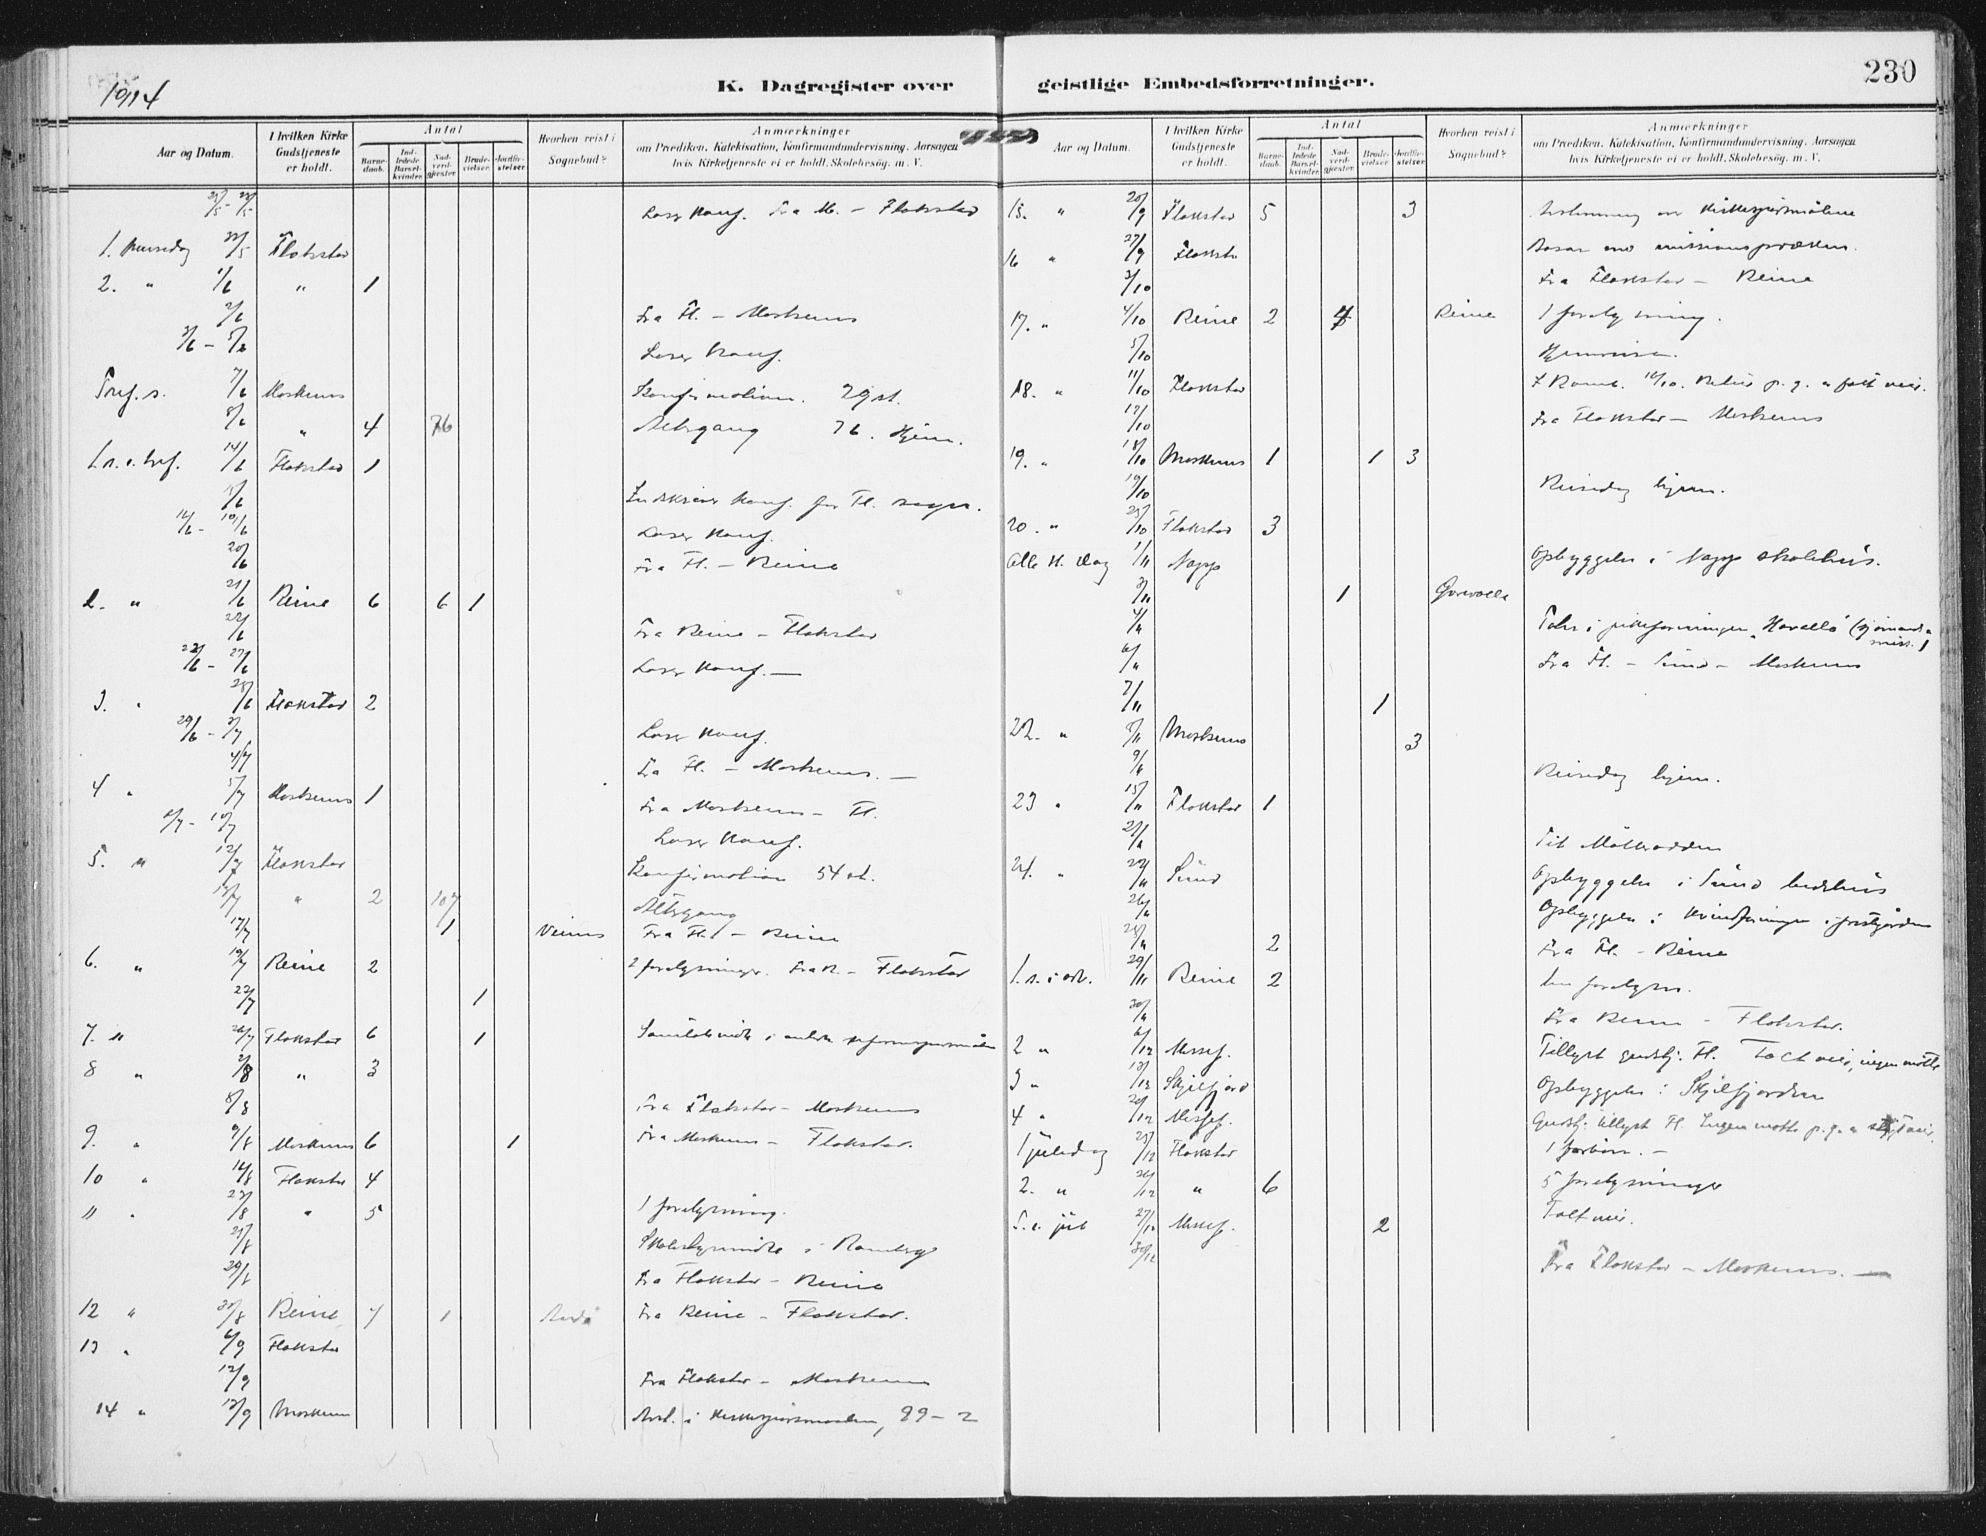 230
1914
K. Dagregister over geistlige Embedsforretninger.
Aar og Datum. I hvilken Kirke Gudstjeneste er holdt. Antal Barne-daab. Ind-ledede Barsel-kvinder. Nad-verd-gjester Brude-vielser. Jordfæ-stelser Hvorhen reist i Sognebud? Anmærkninger om Prædiken, Katekisation, Konfirmandundervisning, Aarsagen hvis Kirketjeneste ei er holdt, Skolebesøg, m. V.
Læser konf. Fra M. - Flakstad
1. pinsedag 31/5 Flakstad
2. " 1/6 " 1
2/6 Fra Fl. - Moskenes
3/6 - 5/6 Læser konf.
Tref. s. 7/6 Moskenes Konfirmation. 29 st.
8/6 " 4 76 Altergang 76. Hjem.
1 s. e. tref. 14/6 Flakstad 1
15/6 Indskriver konf. for Fl. sogn.
16/6 - 19/6 Læser konf.
20/6 Fra Fl. - Reine
2. " 21/6 Reine 6 6 1
22/6 Fra Reine - Flakstad
23/6 - 27/6 Læser konf.
3. " 28/6 Flakstad 2
29/6 - 3/7 Læser konf.
4/7 Fra Fl. - Moskenes.
4 " 5/7 Moskenes 1 Fra Moskenes - Fl.
6/7 - 10/7 Læser konf.
5. " 12/7 Flakstad Konfirmation 54 st.
13/7 " 2 107 Altergang
17/7 1 Fra Fl. - Reine
6. " 19/7 Reine 2 2 forlysninger. Fra R. - Flakstad
22/7 1
7. " 26/7 Flakstad 6 1
8 " 2/8 " 3
8/8 Fra Flakstad - Moskenes
9. " 9/8 Moskenes 6 1 Fra Moskenes - Flakstad.
10 " 16/8 Flakstad 4
11 " 23/8 " 5 1 forlysning.
Skolestyremøte i Ramberg
29/8 Fra Flakstad - Reine
12 " 30/8 Reine 7 1 Fra Reine - Flakstad.
13 " 6/9 Flakstad
12/9 Fra Flakstad - Moskenes
14 " 13/9 Moskenes Avst. i kirkespørsmaalene, 89 - 2
Aar og Datum. I hvilken Kirke Gudstjeneste er holdt. Antal Barne-daab. Ind-ledede Barsel-kvinder. Nad-verd-gjester Brude-vielser. Jordfæ-stelser Hvorhen reist i Sognebud? Anmærkninger om Prædiken, Katekisation, Konfirmandundervisning, Aarsagen hvis Kirketjeneste ei er holdt, Skolebesøg, m. V.
15. " 20/9 Flakstad 5 3 Avstemning over kirkespørsmålene
16 " 27/9 Flakstad Basar med missionsprædiken.
3/10 Fra Flakstad - Reine
17. " 4/10 Reine 2 4 Reine 1 forlysning.
5/10 Hjemreise.
18. " 11/10 Flakstad
17/10 Fra Flakstad - Moskenes
19. " 18/10 Moskenes 1 1 3
19/10 Reisedag hjem.
20. " 25/10 Flakstad 3
Alle H. Dag 1/11 Napp Opbyggelse i Napp skolehus.
3/11 1
4/11
6/11 Fra Fl. - Sund - Moskenes
7/11 1
22. " 8/11 Moskenes 3
9/11 Reisedag hjem.
23 " 15/11 Flakstad 1
21/11 Til Mölkodden
24. " 22/11 Sund Opbyggelse i Sund bedehus
26/11 Opbyggelse i kvindeforeningen i prestgården
28/11 2 Fra Fl. - Reine
1. s. i adv. 29/11 Reine 2
30/11 Fra Reine - Flakstad.
2 " 6/12 Messef. Tillyst gudstj. Fl. ingen møtte
3 " 13/12 Skjelfjord Opbyggelse i Skjelfjorden
4 " 20/12 Messef. Gudstj. tillyst Fl. Ingen møtte p. g. a.
1 juledag 25/12 Flakstad 1 forbøn.
2. " 26/12 " 6 5 forlysninger
S. e. jul 27/12 Messef. 2
30/12 Fra Flakstad - Moskenes.